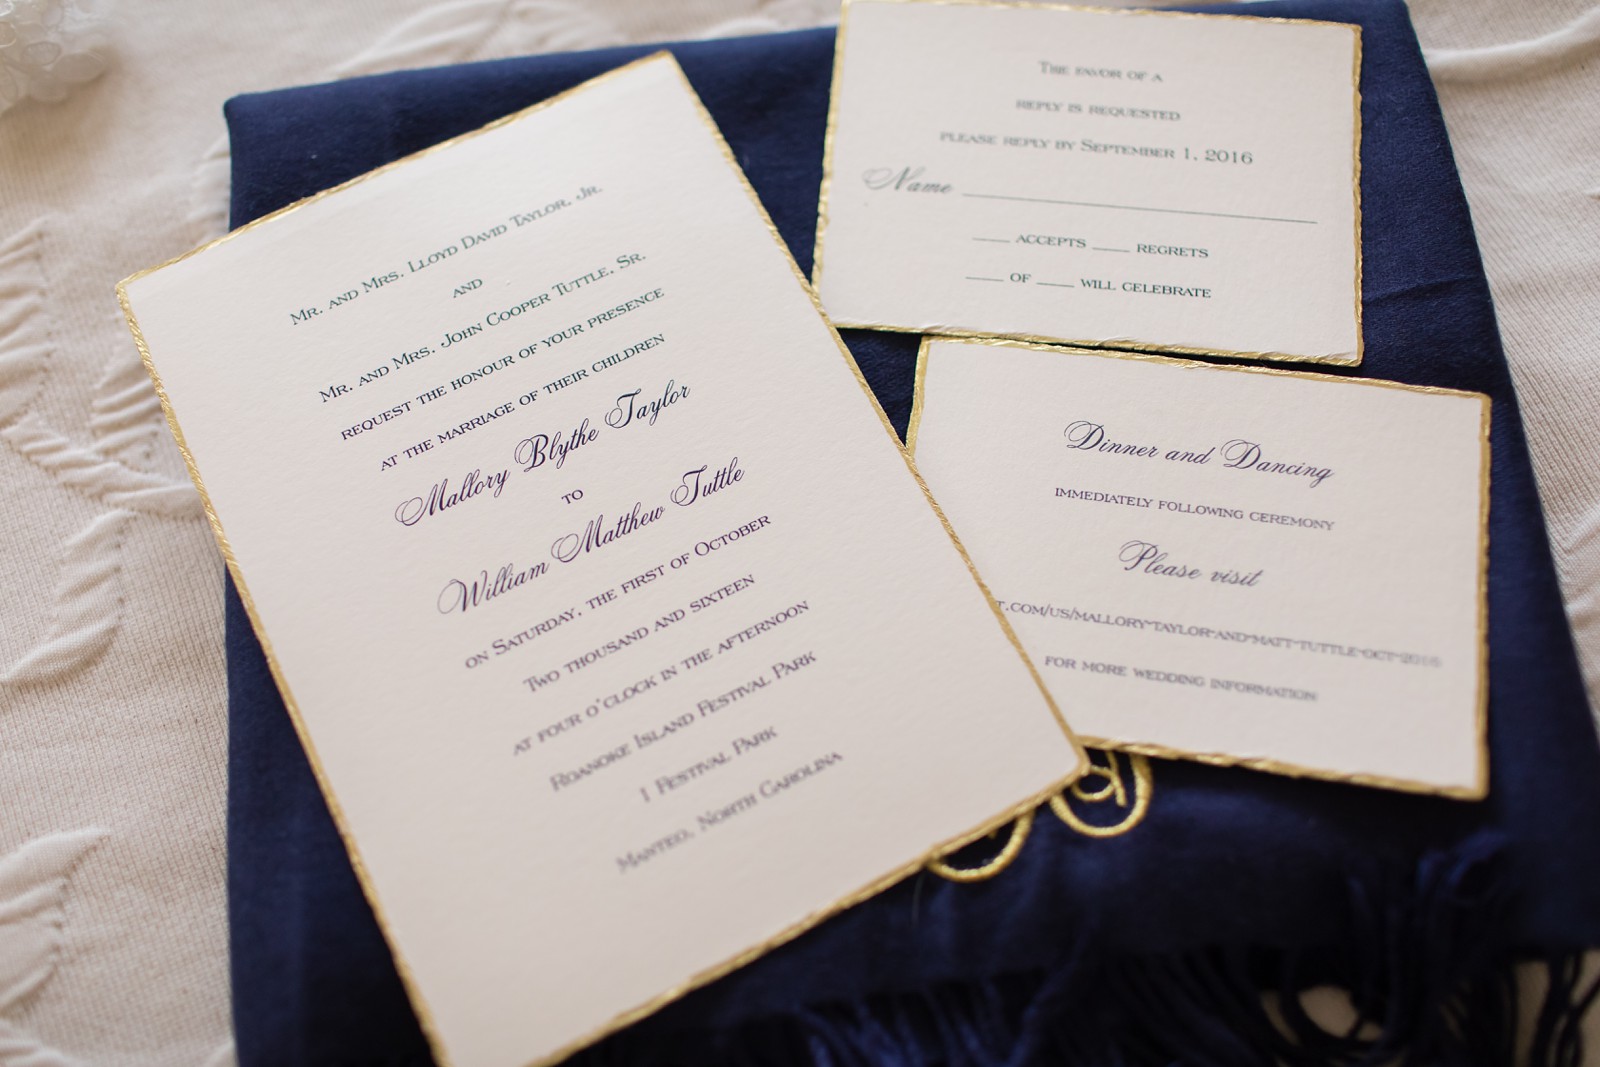 Mr. and Mrs. Lloyd David Taylor, Jr.
and
Mr. and Mrs. John Cooper Tuttle, Sr.
request the honour of your presence
at the marriage of their children
Mallory Blythe Taylor
to
William Matthew Tuttle
on Saturday, the first of October
Two thousand and sixteen
at four o'clock in the afternoon
Roanoke Island Festival Park
1 Festival Park
Manteo, North Carolina
The favor of a
reply is requested
please reply by September 1, 2016
Name ____
____ accepts ____ regrets
____ of ____ will celebrate
Dinner and Dancing
immediately following ceremony
Please visit
t.com/us/mallory-taylor-and-matt-tuttle-oct-2016
for more wedding information